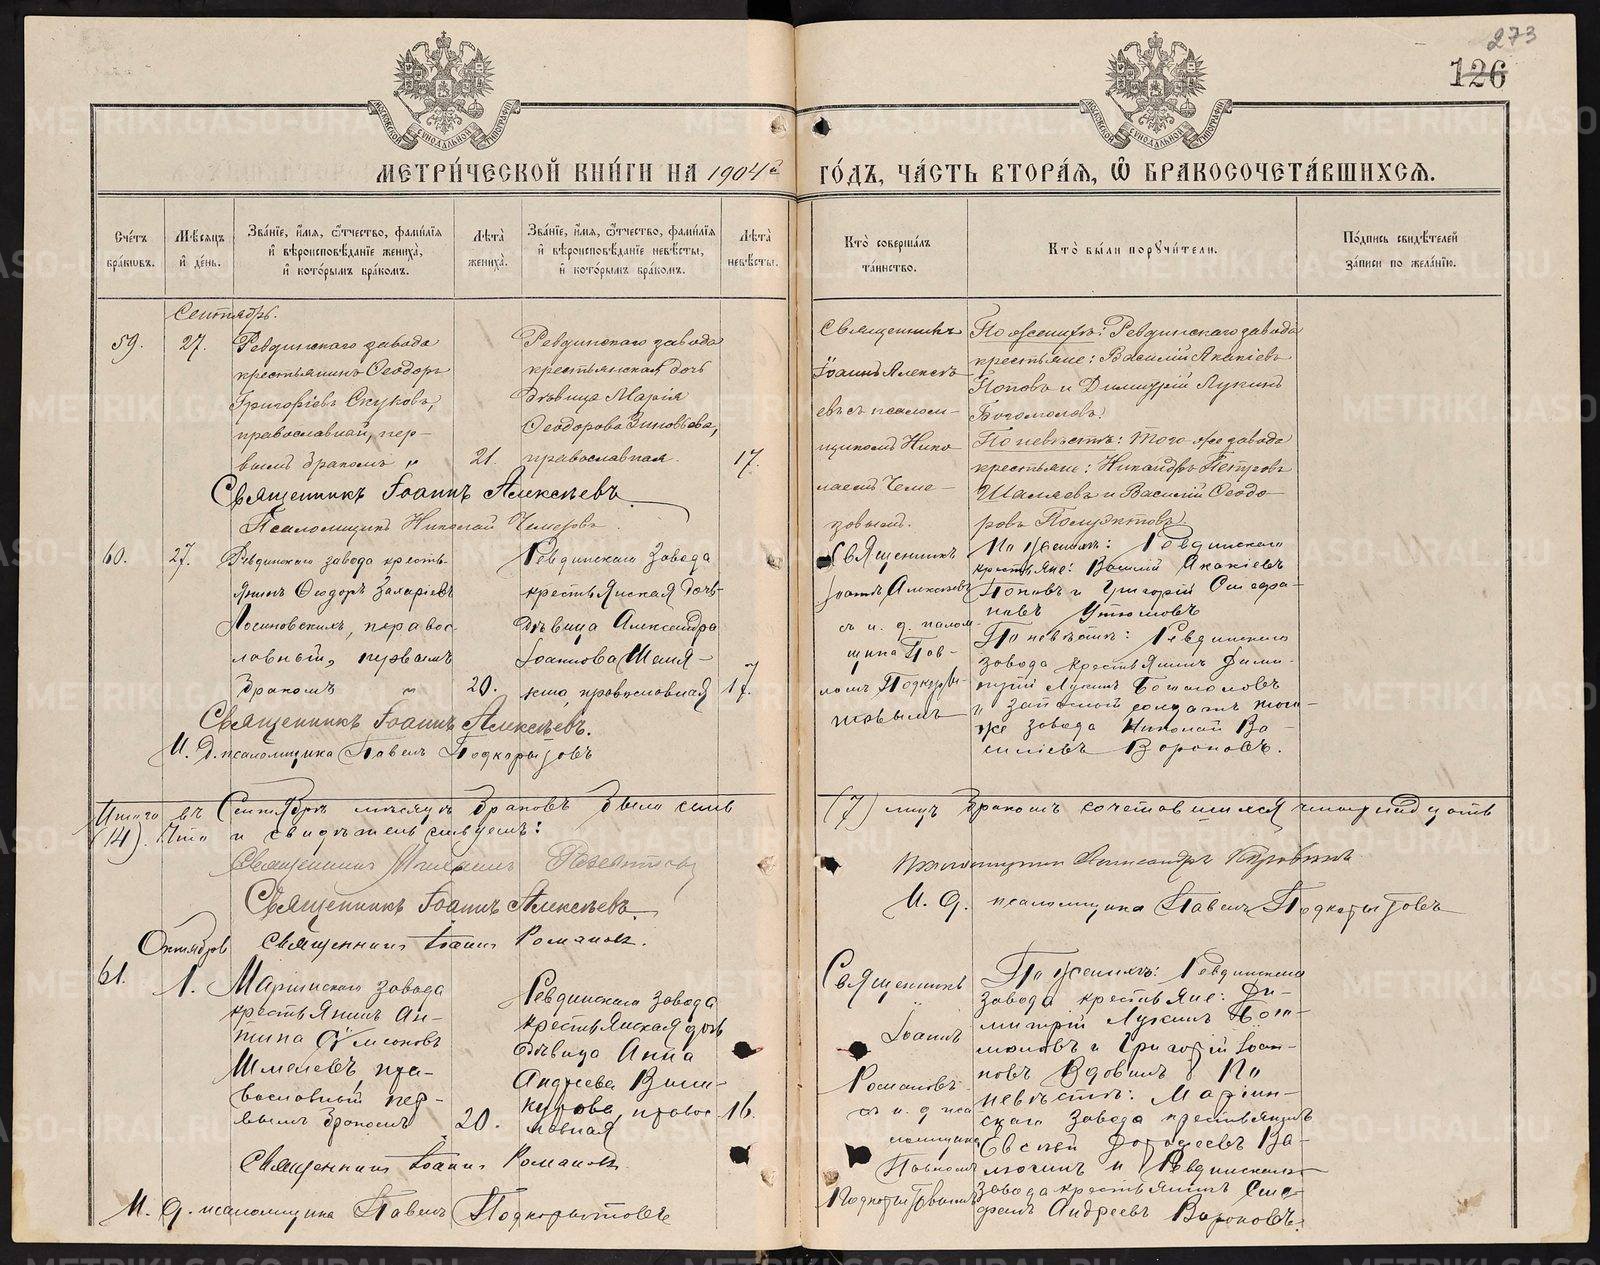 273
126
МЕТРИ́ЧЕСКОЙ КНИ́ГИ НА 1904й
ГО́ДЪ, ЧА́СТЬ ВТОРА́Я, Ѽ БРАКОСОЧЕТА́ВШИХСЯ.
Сче́тъ бра́кѡвъ.
Мѣ́сяцъ и҆ де́нь.
Зва́нїе, и҆́мя, ѻ҆́тчество, фами́лїя и҆ вѣроисповѣ́данїе жениха̀, и҆ кото́рымъ бра́комъ.
Лѣта̀ жениха̀.
Зва́нїе, и҆́мя, ѻ҆́тчество, фами́лїя и҆ вѣроисповѣ́данїе невѣ́сты, и҆ кото́рымъ бра́комъ.
Лѣта̀ невѣ́сты.
Кто̀ соверша́лъ та́инство.
Кто̀ бы́ли поруч́ители.
По́дпись свидѣ́телей за́писи по жела́нїю.
Сентябрь.
59.
27.
Ревдинскаго завода
крестьянинъ Ѳеодоръ
Григоріевъ Скуковъ,
православный, пер-
вымъ бракомъ "
21.
Ревдинскаго завода
крестьянская дочь
дѣвица Марія
Ѳеодорова Зиновьева,
православная.
17.
Священникъ
Іоаннъ Алексѣ-
евъ съ псалом-
щикомъ Нико-
лаемъ Чеме-
зовымъ.
По женихѣ: Ревдинскаго завода
крестьяне: Василій Акакіевъ
Поповъ и Димитрій Лукинъ
Богомоловъ.
По невѣстѣ: того же завода
крестьяне: Никандръ Петровъ
Шаляевъ и Василій Ѳеодо-
ровъ
Священникъ Іоаннъ Алексѣевъ
Псаломщикъ Николай Чемезовъ.
60.
27.
Ревдинскаго завода кресть-
янинъ Ѳеодоръ Захаріевъ
Лосиновскихъ, правос-
лавный, первымъ
бракомъ "
20.
Ревдинскаго завода
крестьянская дочь
дѣвица Александра
Іоаннова Шемя-
кина, православная
17.
Священникъ
Іоаннъ Алексѣевъ
съ и. д. псалом-
щика Пав-
ломъ Подкоры-
товымъ
По женихѣ: Ревдинскаго
крестьяне: Василій Акакіевъ
Поповъ и Григорій Стефа-
новъ Утюмовъ
По невѣстѣ: Ревдинскаго
завода крестьянинъ Дими-
трій Лукинъ Богомоловъ
и запасный солдатъ того-
же завода Николай Ва-
сильевъ Вороновъ.
Священникъ Іоаннъ Алексѣевъ.
И. д. псаломщика Павелъ Подкорытовъ
Итого въ Сентябрѣ мѣсяцѣ браковъ было семь
(7) лицъ бракомъ сочетавшихся четырнадцать
(14). Что и свидѣтельствуемъ:
Священникъ
Священникъ Іоаннъ Алексѣевъ.
Священникъ Іоаннъ Романовъ.
Псаломщикъ Александръ
И. д. псаломщика Павелъ Подкорытовъ
Октябрь
61.
1.
Маріинскаго завода
крестьянинъ Ан-
типа
Шмелевъ, пра-
вославный, пер-
вымъ бракомъ
20.
Ревдинскаго завода
крестьянская дочь
дѣвица Анна
Андреева Вини-
курова, правос-
лавная
16.
Священникъ
Іоаннъ
Романовъ
съ и. д. пса-
ломщика
Павломъ
Подкорытовымъ
По женихѣ: Ревдинскаго
завода крестьяне: Ди-
митрій Лукинъ Бого-
моловъ и Григорій Іоан-
новъ Вдовинъ. По
невѣстѣ: Маріин-
скаго завода крестьянинъ
Евсевій Дорофеевъ Ва-
люгинъ и Ревдинскаго
завода крестьянинъ Сте-
фанъ Андреевъ Вороновъ.
Священникъ Іоаннъ Романовъ.
И. д. псаломщика Павелъ Подкорытовъ